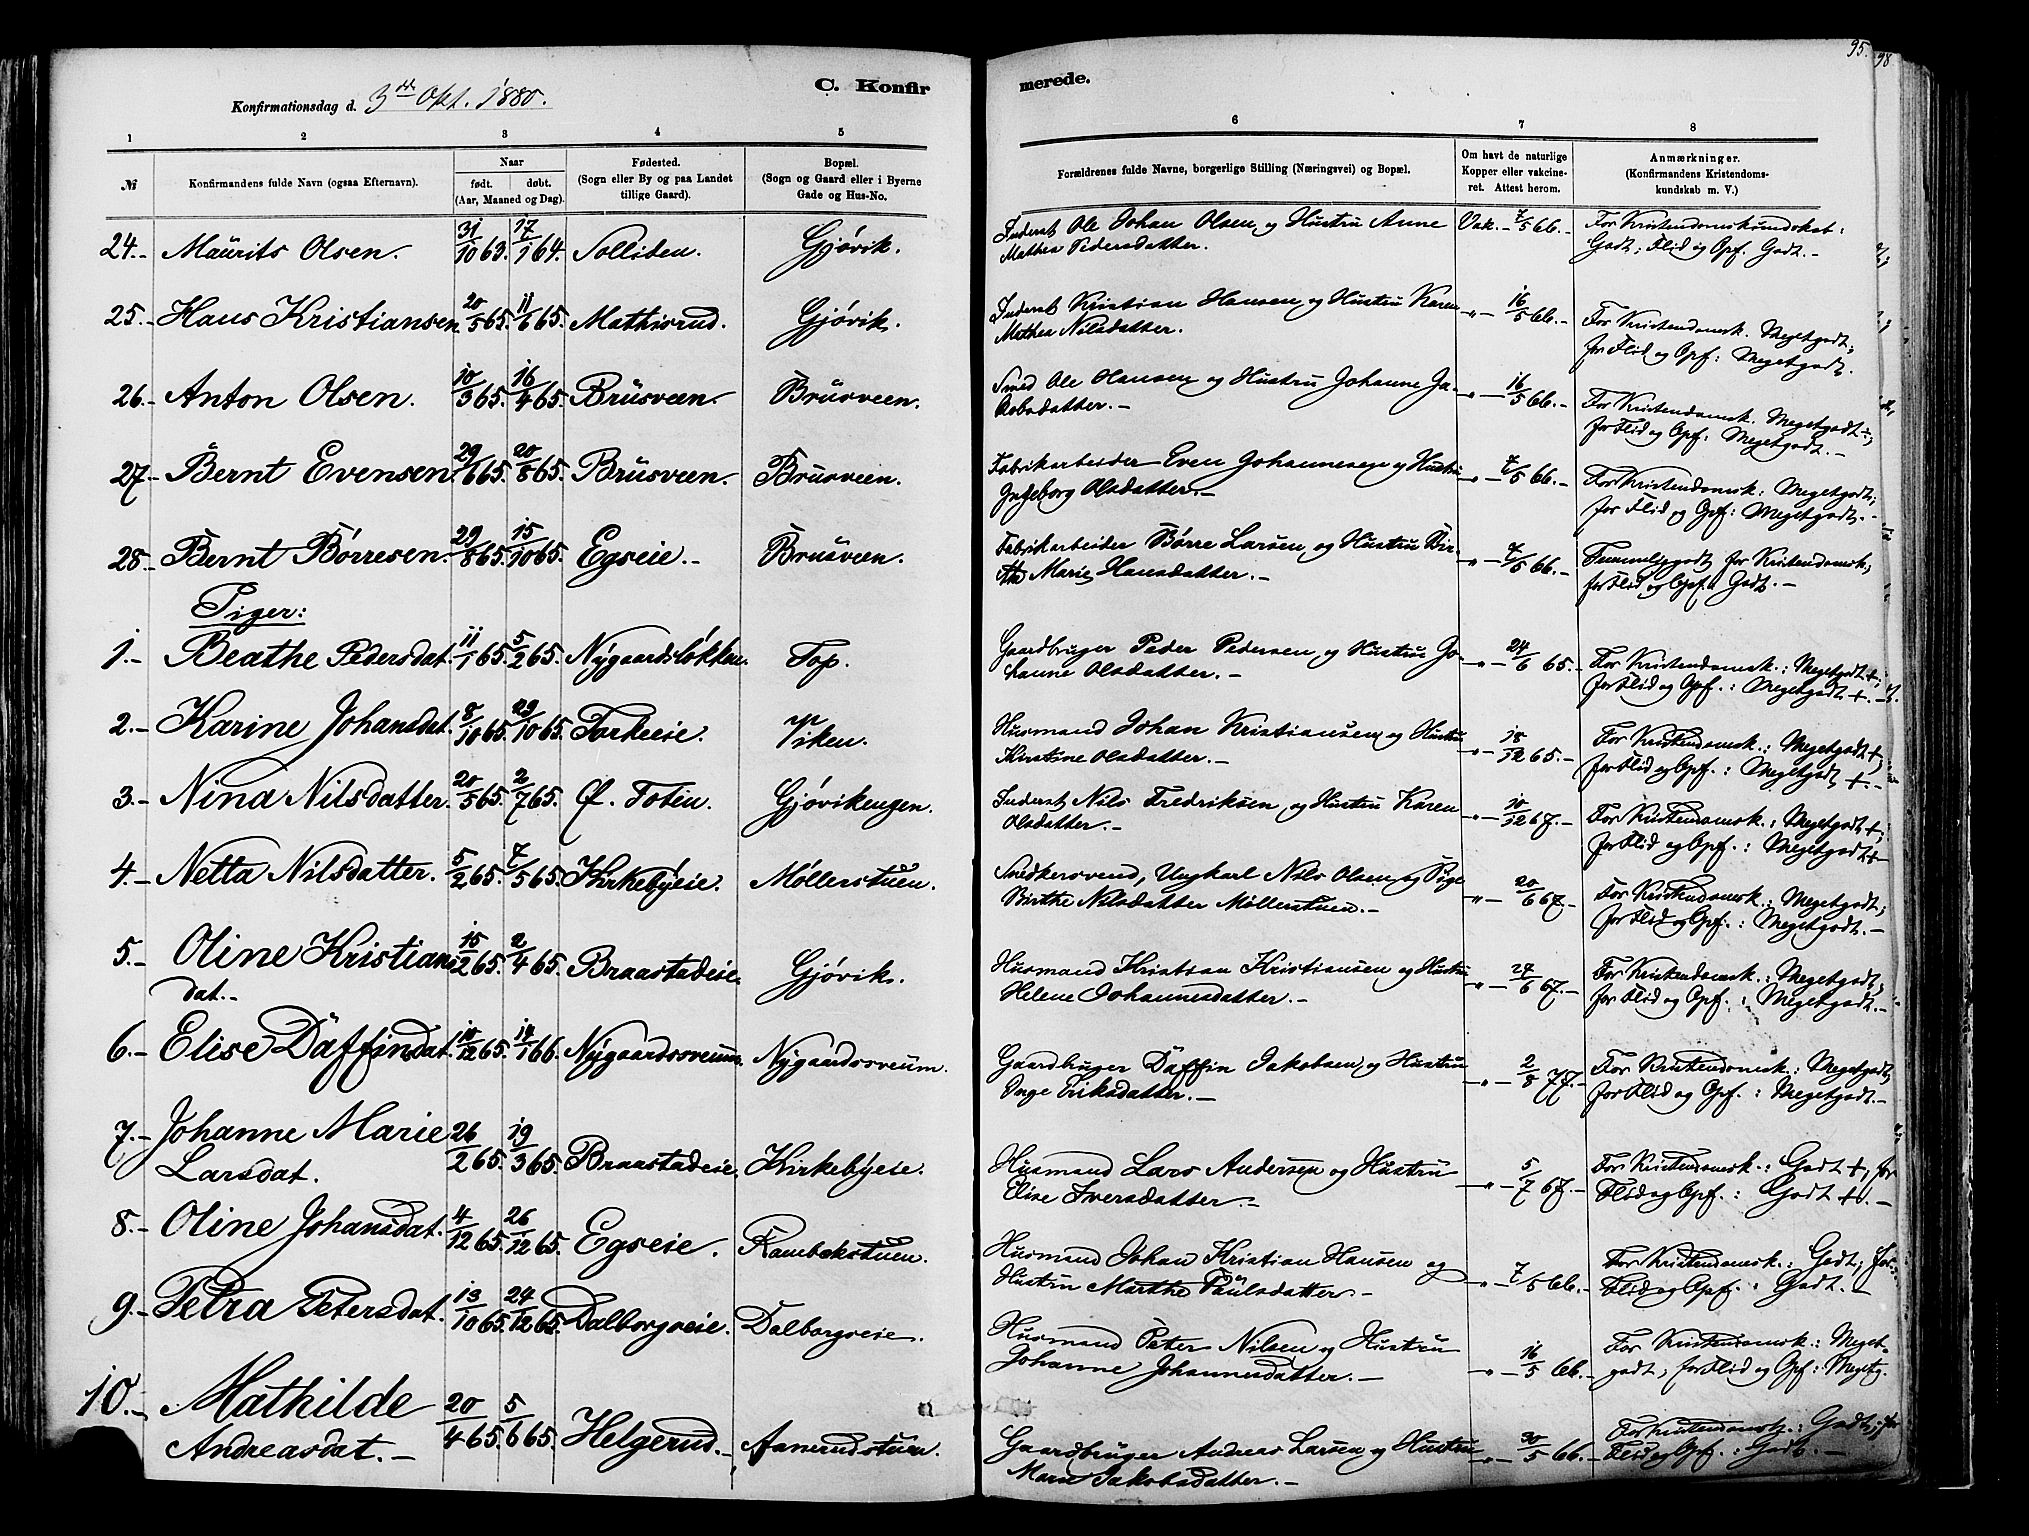 95. 98
Konfirmationsdag d. 3die Okt. 1880.
C. Konfirmerede.
1 2 3 4 5 6 7 8
№
Konfirmandens fulde Navn (ogsaa Efternavn).
Naar
født. døbt.
(Aar, Maaned og Dag).
Fødested.
(Sogn eller By og paa Landet
tillige Gaard).
Bopæl.
(Sogn og Gaard eller i Byerne
Gade og Hus-No.
Forældrenes fulde Navne, borgerlige Stilling (Næringsvei) og Bopæl.
Om havt de naturlige
Kopper eller vakcine-
ret. Attest herom.
Anmærkninger.
(Konfirmandens Kristendoms-
kundskab m. V.)
24.- Maurits Olsen. 31/10 63. 17/1 64. Solliden. Gjøvik. Inderst Ole Johan Olsen, og Hustru Anne Vak.- 7/5 66.- For Kristendomskundskab:
Mathea Pedersdatter. Godt; Flid og Opf. Godt.-
25.- Hans Kristiansen 20/5 65. 11/6 65. Mathisrud. Gjøvik. Inderst Kristian Hansen, og Hustru Karen -"- 16/5 66.- For Kristendomsk. Megetgodt;
Mathea Nilsdatter. for Flid og Opf: Megetgodt.
26.- Anton Olsen. 10/3 65. 16/4 65. Brusveen. Brusveen. Smed Ole Hansen og Hustru Johanne Ja- -"- 16/5 66.- For Kristendomsk. Megetgodt +;
kobsdatter.- for Flid og Opf: Megetgodt.-
27.- Bernt Evensen. 29/6 65. 20/8 65. Brusveen. Brusveen. Fabrikarbeider Even Johannesen og Hustru -"- 7/5 66.- For Kristendomsk: Megetgodt;
Ingeborg Olsdatter.- for Flid og Opf: Megetgodt.-
28.- Bernt Børresen. 29/8 65. 15/10 65. Egseie.- Brusveen. Fabrikarbeider Børre Larsen, og Hustru Bir- -"- 7/5 66.- Temmeliggodt for Kristendomsk,
the Marie Hansdatter.- for Flid og Opf: Godt.-
Piger:
1.- Beathe Pedersdat. 11/1 65. 5/2 65. Nygaardsløkken. Top. Gaardbruger Peder Pedersen, og Hustru Jo- -"- 24/6 65.- For Kristendomsk.: Megetgodt +;
hanne Olsdatter.- for Flid og Opf.: Megetgodt +.-
2.- Karine Johansdat. 8/10 65. 29/10 65. Torkeeie. Viken. Husmand Johan Kristiansen, og Hustru -"- 18/12 65.- For Kristendomsk.: Megetgodt +;
Kirstine Olsdatter.- for Flid og Opf.: Megetgodt +.-
3.- Nina Nilsdatter. 20/5 65. 2/7 65. Ø. Toten. Gjøvikengen. Inderst Nils Fredriksen, og Hustru Karen -"- 10/12 67.- For Kristendomsk.: Megetgodt +;
Olsdatter.- for Flid og Opf.: Megetgodt +
4.- Netta Nilsdatter. 5/2 65. 7/5 65. Kirkebyeie. Møllerstuen. Snedkersvend, Ungkarl Nils Olsen og Pige -"- 20/6 67.- For Kristendomsk.: Megetgodt;
Birthe Nilsdatter Møllerstuen.- for Flid og Opf.: Megetgodt.-
5.- Oline Kristians 15/2 65. 2/4 65. Braastadeie. Gjøvik. Husmand Kristian Kristiansen og Hustru -"- 27/6 67.- For Kristendomsk.: Megetgodt,
dat.- Helene Johannesdatter.- for Flid og Opf.: Megetgodt.-
6.- Elise Däffindat. 10/12 65. 14/1 66. Nygaardssveum. Nygaardssveum. Gaardbruger Däffin Jakobsen, og Hustru -"- 2/8 77.- For Kristendomsk.: Megetgodt,
Inge Eriksdatter.- for Flid og Opf.: Megetgodt.-
7.- Johanne Marie 26/2 65. 19/3 65. Braastadeie. Kirkebyeie. Husmand Lars Andersen og Hustru -"- 5/7 67.- For Kristendomsk.: Godt +, for
Larsdat. Elise Iversdatter.- Flid og Opf.: Godt +.-
8.- Oline Johansdat. 4/12 65. 26/12 65. Egseie. Rambekstuen. Husmand Johan Kristian Hansen og -"- 7/5 66.- For Kristendomsk.: Godt; for
Hustru Marthe Paulsdatter.- Flid og Opf.: Godt.-
9.- Petra Petersdat. 13/10 65. 24/12 65. Dalborgseie. Dalborgseie. Husmand Peter Nilsen og Hustru -"- 16/5 66.- For Kristendomsk: Meget-
Johanne Johannesdatter.- godt, for Flid og Opf: Megetg.
10.- Mathilde 20/4 65. 5/6 65. Helgerud.- Aanerudstuen. Gaardbruger Andreas Larsen og Hustru -"- 30/5 66.- For Kristendomsk.: Godt; for
Andreasdat.- Maren Jakobsdatter.- Flid og Opf.: Godt.-